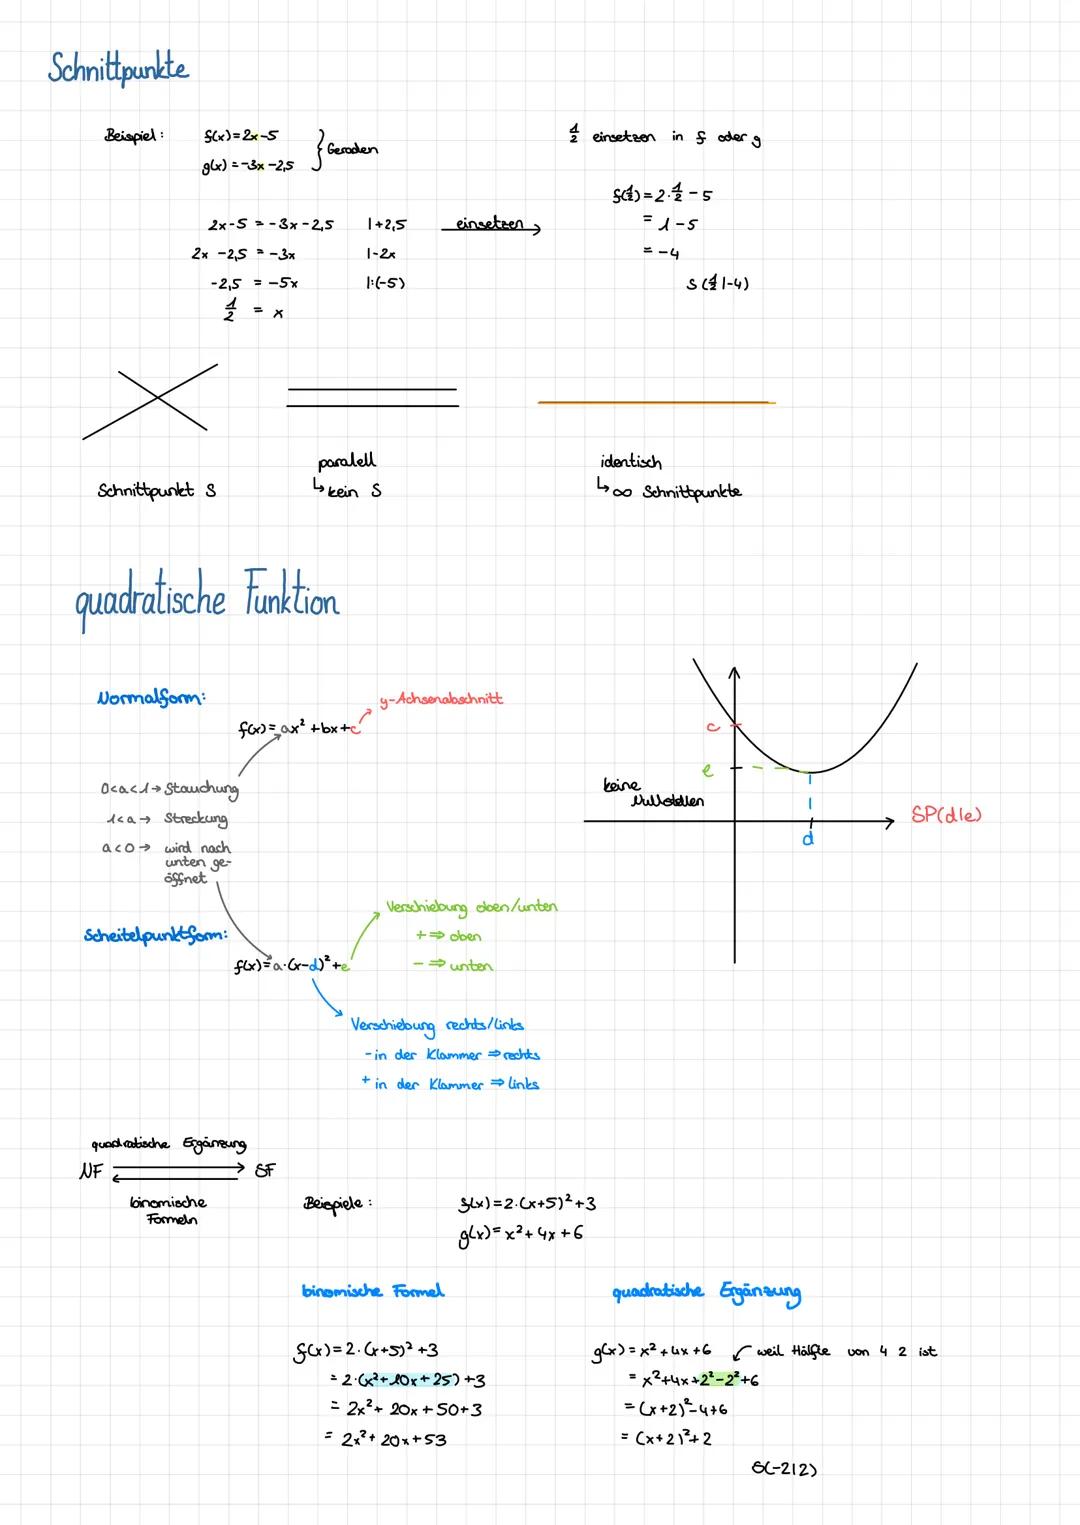 Schnittpunkte
Beispiel: f(x)=2x-5
g(x)=-3x-2,5
} Geraden
2x-5 = -3x-2,5 |+2,5
2x -2,5 = -3x |-2x
-2,5 = -5x |:(-5)
1/2 = x
einsetzen
1/2 einsetzen in f oder g
f(1/2)=2·1/2 - 5
= 1-5
= -4
S (1/2 |-4)
Schnittpunkt S
paralell
↳ kein S
identisch
↳ ∞ Schnittpunkte
quadratische Funktion
Normalform:
y-Achsenabschnitt
f(x)= ax² +bx+c
0<a<1 → Stauchung
1<a → Streckung
a<0 → wird nach
unten ge-
öffnet
c
e
keine
Nullstellen
d
SP(d|e)
Scheitelpunktform:
f(x)=a·(x-d)²+e
Verschiebung oben/unten
+ ⇒ oben
- ⇒ unten
Verschiebung rechts/links
- in der Klammer ⇒ rechts
+ in der Klammer ⇒ links
quadratische Ergänzung
NF SF
binomische
Formeln
Beispiele: f(x)=2·(x+5)²+3
g(x)=x²+4x+6
binomische Formel
f(x)=2·(x+5)²+3
=2·(x²+10x+25)+3
= 2x²+20x+50+3
= 2x²+20x+53
quadratische Ergänzung
g(x)=x²+4x+6 weil Hälfte von 4 2 ist
= x²+4x+2²-2²+6
= (x+2)²-4+6
= (x+2)²+2
S(-2|2)